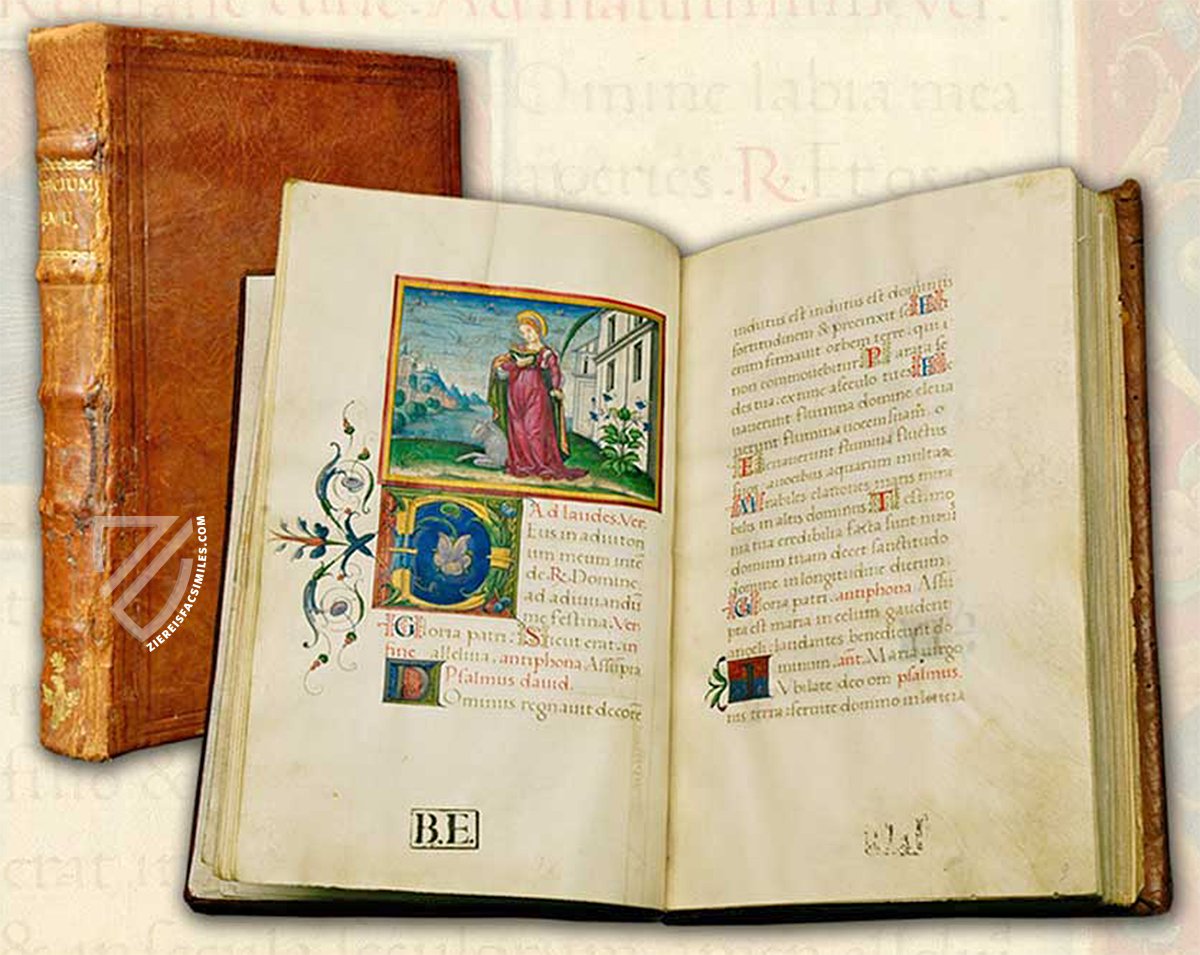 Romane curie. Ad matutinum. ver.
Omine labia mea
aperies. R. Et os
OFFICIUM
ZIEREISFACSIMILES.COM
Ad laudes. Ver.
Eus in adiutori
um meum inte
de. R. Domine
ad adiuuandū
me festina. Ver.
Gloria patri. Sicut erat. in
fine alleluia. antiphona. Assūpta
Psalmus dauid.
Ominus regnauit decorē
B.E.
indutus est indutus est dominus
fortitudinem & precinxit se. E
enim firmauit orbem terre: qui
non commouebitur. Parata se
des tua: ex tunc a seculo tu es. E
leuauerunt flumina domine eleua
uerunt flumina uocem suam.
E leuauerunt flumina fluctus
a uocibus aquarum multarū
M irabiles elationes maris mira
bilis in altis dominus. Testimo
nia tua credibilia facta sunt nimis
domum tuam decet sanctitudo
domine in longitudine dierum.
Gloria patri. antiphona. Assū
pta est maria in celum gaudent
angeli laudantes benedicunt do
minum. ant. Maria uirgo
Iubilate deo om psalmus.
nis terra: seruite domino in leticia